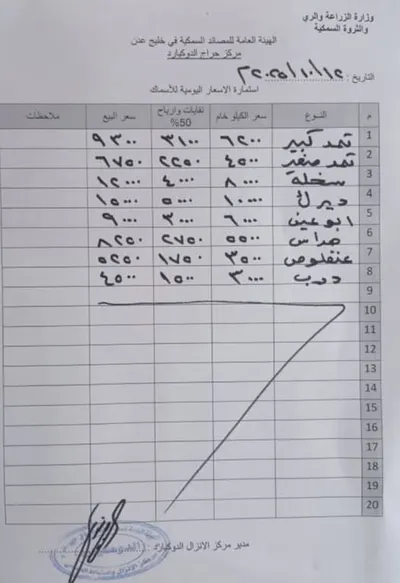 وزارة الزراعة والري
والثروة السمكية
الهيئة العامة للمصائد السمكية في خليج عدن
مركز حراج الدوكيارد
التاريخ : ٢٠٢٥/١٠/١٢م
استمارة الاسعار اليومية للأسماك
م النوع سعر الكيلو خام نفايات وارباح 50% سعر البيع ملاحظات
1 ثمد كبير ٦٢٠٠ ٣١٠٠ ٩٣٠٠
2 ثمد صغير ٤٥٠٠ ٢٢٥٠ ٦٧٥٠
3 سخلة ٨٠٠٠ ٤٠٠٠ ١٢٠٠٠
4 ديرك ١٠٠٠٠ ٥٠٠٠ ١٥٠٠٠
5 ابو عين ٦٠٠٠ ٣٠٠٠ ٩٠٠٠
6 صداس ٥٥٠٠ ٢٧٥٠ ٨٢٥٠
7 عنفلوص ٣٥٠٠ ١٧٥٠ ٥٢٥٠
8 درب ٣٠٠٠ ١٥٠٠ ٤٥٠٠
9
10
11
12
13
14
15
16
17
18
19
20
مدير مركز الانزال الدوكيارد :